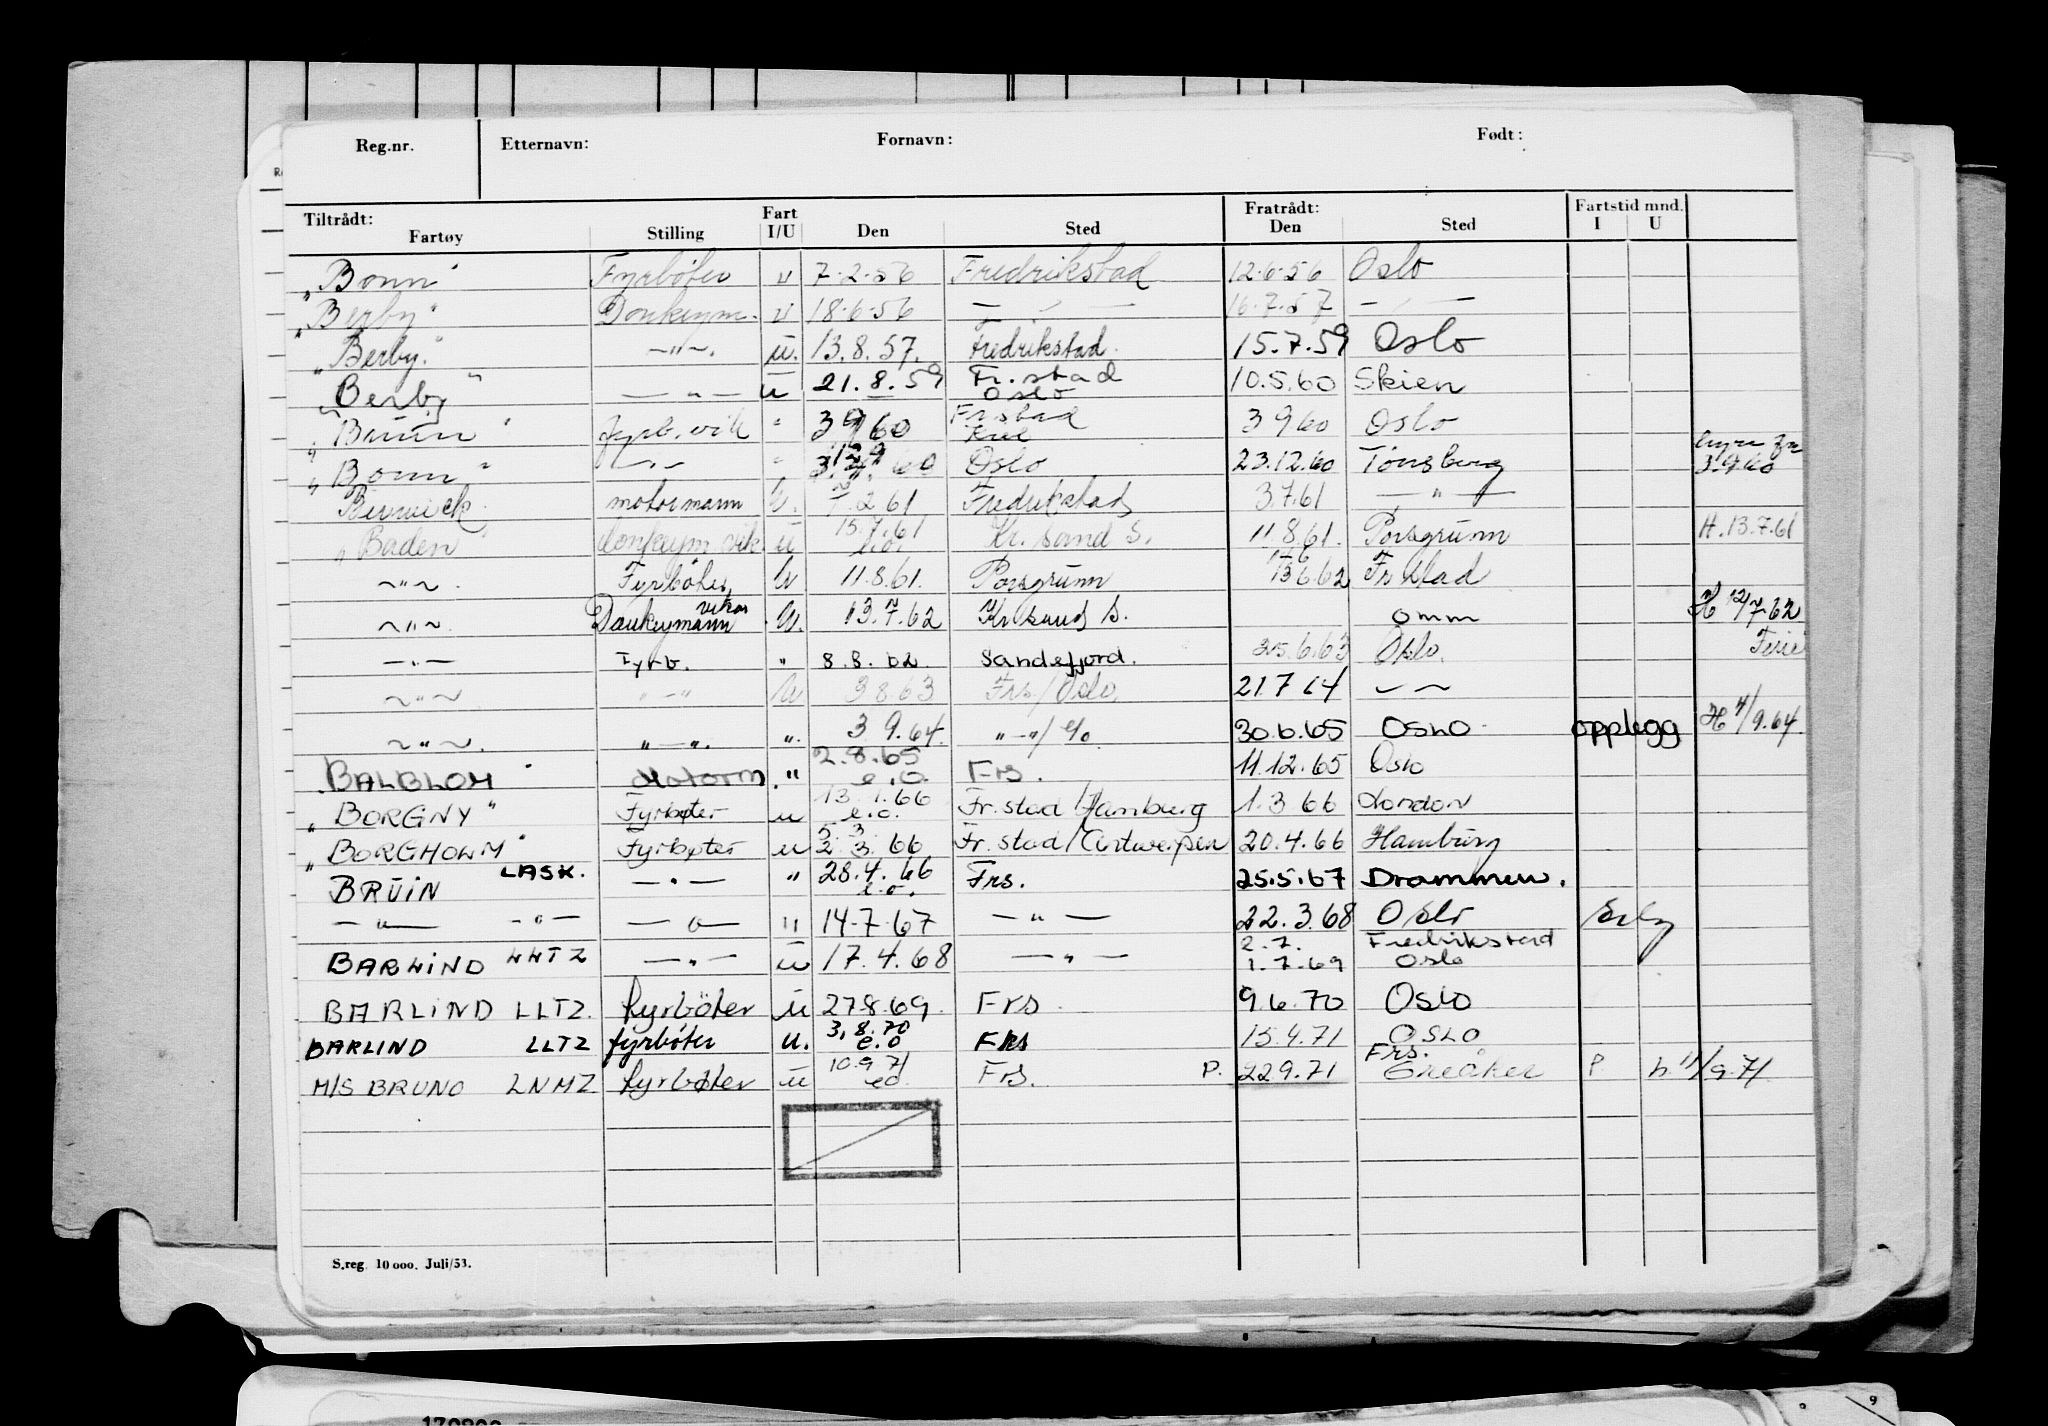 Reg.nr. Etternavn: Fornavn: Født:
Tiltrådt: Fratrådt: Fartstid mnd.
Fartøy Stilling Fart I/U Den Sted Den Sted I U
"Bonn" Fyrbøter u 7-2-56 Fredrikstad 12-6-56 Oslo
"Berby" Donkeym. u 18-6-56 — " — 16.7.57 — " —
"Berby." —"—. u. 13.8.57. Fredrikstad. 15.7.59 Oslo
"Berby" — " — u 21.8.59 Fr.stad Oslo 10.5.60 Skien
"Bruun" fyrb. vik " 3 9 60 Fr.stad Kiel 3 9 60 Oslo
"Bonn" —"— " 60 Oslo 23.12.60 Tønsberg 3.9.60
motormann u. 2 61 Fredrikstad 3.7.61 — " —
"Baden" donkeym. vik. u 15.7.61 e.o. Kr. sand S. 11.8.61. Porsgrunn H. 13.7.61
—"—. Fyrbøter u 11.8.61. Porsgrunn 13.6.62 Fr.stad
—"—. Donkeymann vikar u. 13.7.62 Kr.sand S. omm H 12/7-62
—"— Fyrb. " 8.8.62. Sandefjord. 25.6.63 Oslo. Ferie
—"— "—" u 3 8 63 Frs/Oslo. 21.7 64 — —
—"—. "—". ". 3 9.64. "—"/e/o 30.6.65 OSLO opplegg H 4/9.64.
BALBLOM" Motorm " 2.8.65 e.o. Frs. 11.12.65 Oslo
"BORGNY" Fyrbøter u 13.1.66 e.o. Fr.stad/Hamburg 1.3 66 London
"BORGHOLM" Fyrbøter u 5.3. 2.3.66 Fr.stad/Antwerpen 20.4.66 Hamburg
BRUIN LASK. — " — " 28.4.66 e.o. Frs. 25.5.67 Drammen.
— " — — " — — " — " 14-7-67 — " — 22.3.68 Oslo
BARLIND LLTZ — " — u 17.4.68 — " — 2.7. 1.7.69 Fredrikstad Oslo
BARLIND LLTZ. fyrbøter u 27.8.69. Frs. 9.6.70 Oslo
BARLIND LLTZ fyrbøter u. 3.8.70 e.o FRS 15.4.71 OSLO
M/S BRUNO LNMZ fyrbøter u 10.9 71 eo. Frs. P. 22.9.71 Frs. Greåker P. h 11/9.71.
S.reg. 10 000. Juli/53.